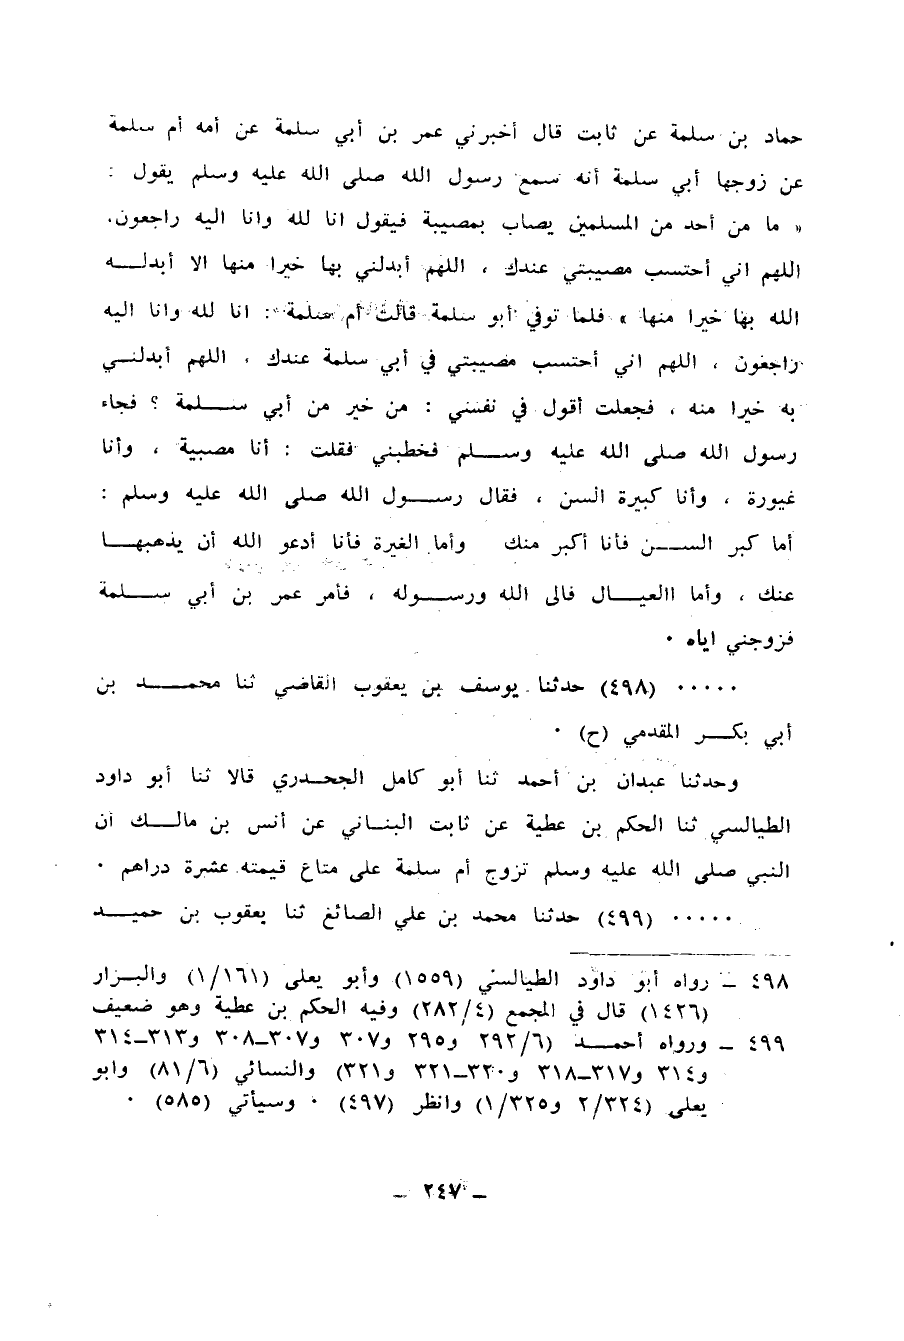 حماد بن سلمة عن ثابت قال أخبرني عمر بن أبي سلمة عن أمه أم سلمة
عن زوجها أبي سلمة أنه سمع رسول الله صلى الله عليه وسلم يقول :
« ما من أحد من المسلمين يصاب بمصيبة فيقول انا لله وانا اليه راجعون.
اللهم اني أحتسب مصيبتي عندك ، اللهم أبدلني بها خيرا منها الا أبدلـــه
الله بها خيرا منها » فلما توفي أبو سلمة قالت أم سلمة : انا لله وانا اليه
راجعون ، اللهم اني أحتسب مصيبتي في أبي سلمة عندك ، اللهم أبدلنــي
به خيرا منه ، فجعلت أقول في نفسي : من خير من أبي ســـلمة ؟ فجاء
رسول الله صلى الله عليه وســـلم فخطبني فقلت : أنا مصبية ، وأنا
غيورة ، وأنا كبيرة السن ، فقال رســـول الله صلى الله عليه وسلم :
أما كبر الســـن فأنا أكبر منك وأما الغيرة فأنا أدعو الله أن يذهبهـــا
عنك ، وأما االعيـــال فالى الله ورســـوله ، فأمر عمر بن أبي ســـلمة
فزوجني اياه ٠
٠٠٠٠٠ (٤٩٨) حدثنا يوسف بن يعقوب القاضي ثنا محمـــد بن
أبي بكـــر المقدمي (ح) ٠
وحدثنا عبدان بن أحمد ثنا أبو كامل الجحـدري قالا ثنا أبو داود
الطيالسي ثنا الحكم بن عطية عن ثابت البنـاني عن أنس بن مالـــك أن
النبي صلى الله عليه وسلم تزوج أم سلمة على متاع قيمته عشرة دراهم ٠
٠٠٠٠٠ (٤٩٩) حدثنا محمد بن علي الصائغ ثنا يعقوب بن حميـــد
٤٩٨ ــ رواه أبو داود الطيالسي (١٥٥٩) وأبو يعلى (١/١٦١) والبـزار
(١٤٢٦) قال في المجمع (٢٨٢/٤) وفيه الحكم بن عطية وهو ضعيف
٤٩٩ ــ ورواه أحمـــد (٢٩٢/٦ و٢٩٥ و٣٠٧ و٣٠٧ــ٣٠٨ و٣١٣ــ٣١٤
و٣١٤ و٣١٧ــ٣١٨ و٣٢٠ــ٣٢١ و٣٢١) والنسائي (٨١/٦) وابو
يعلى (٢/٣٢٤ و١/٣٢٥) وانظر (٤٩٧) ٠ وسيأتي (٥٨٥) ٠
ــ ٢٤٧ ــ